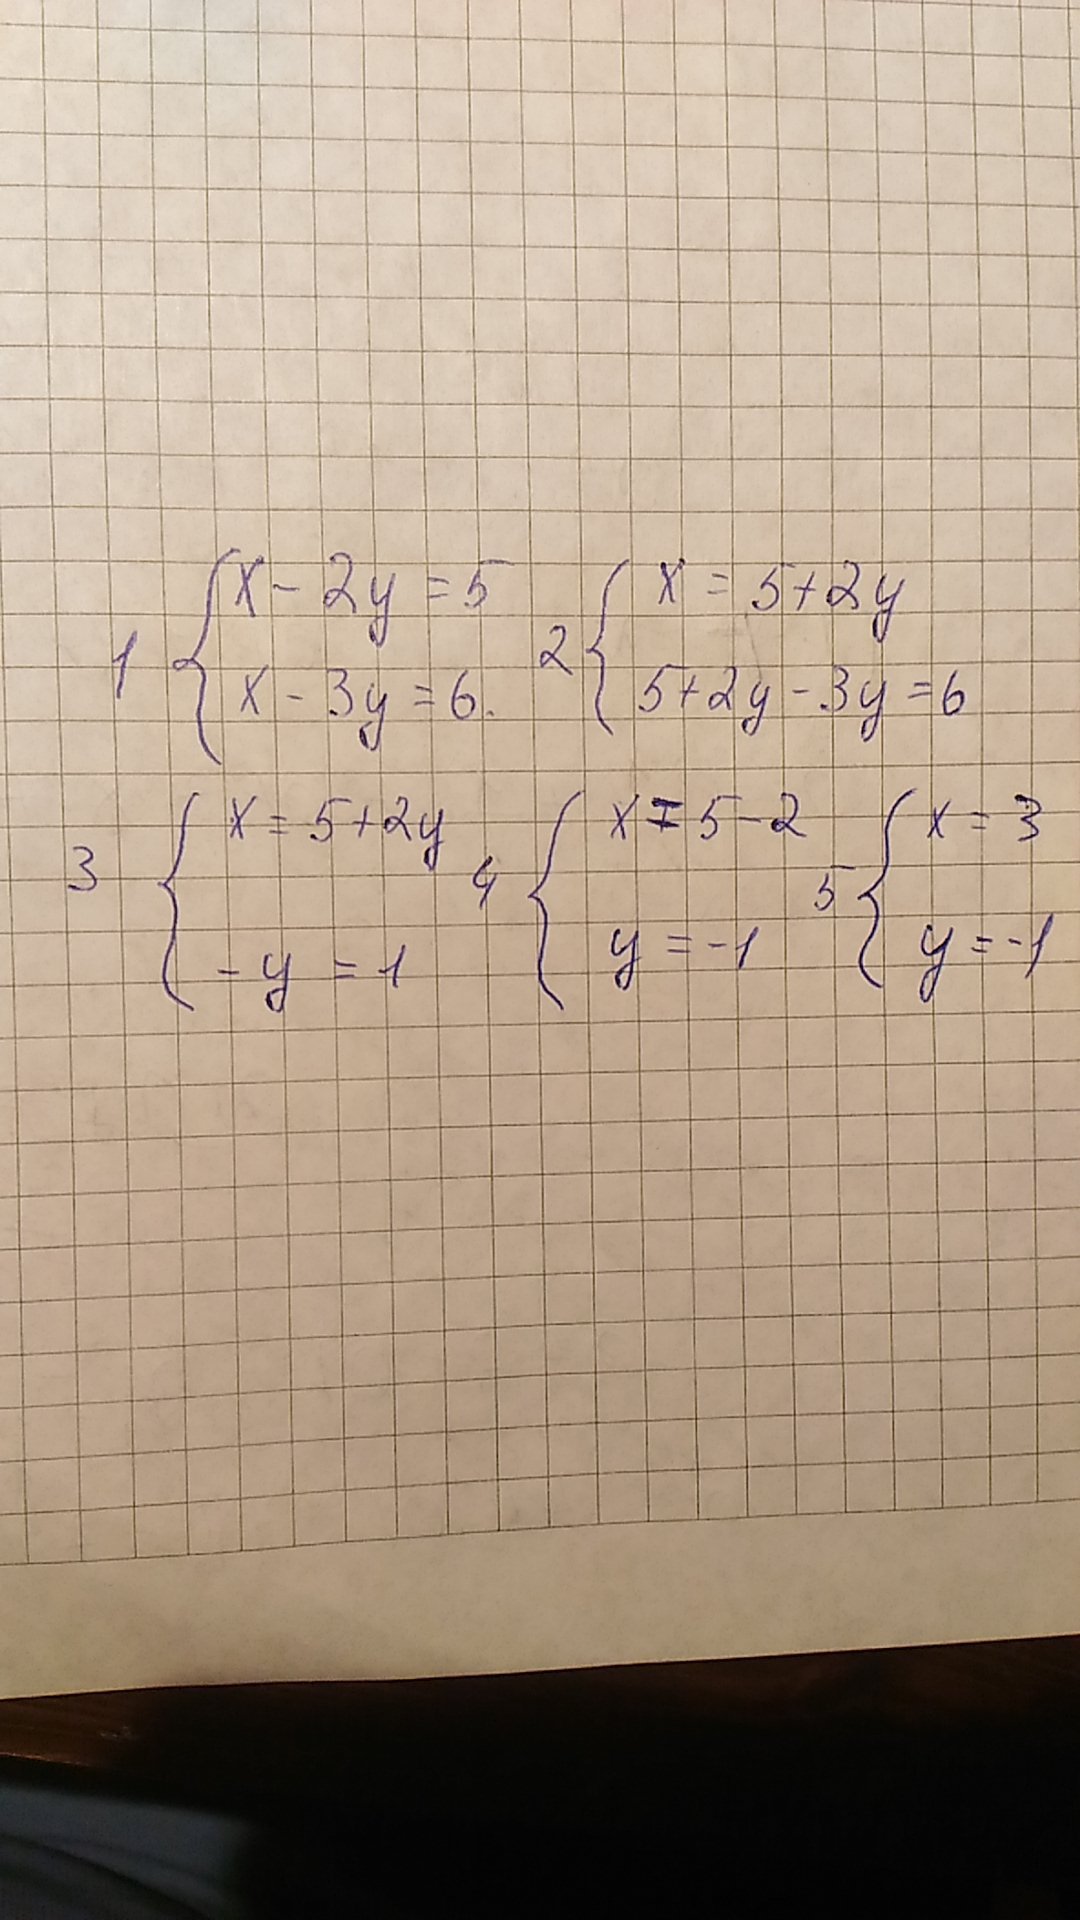 1 { x - 2y = 5
x - 3y = 6.
2 { x = 5+2y
5+2y-3y=6
3 { x = 5+2y
-y = 1
4 { x = 5-2
y = -1
5 { x = 3
y = -1